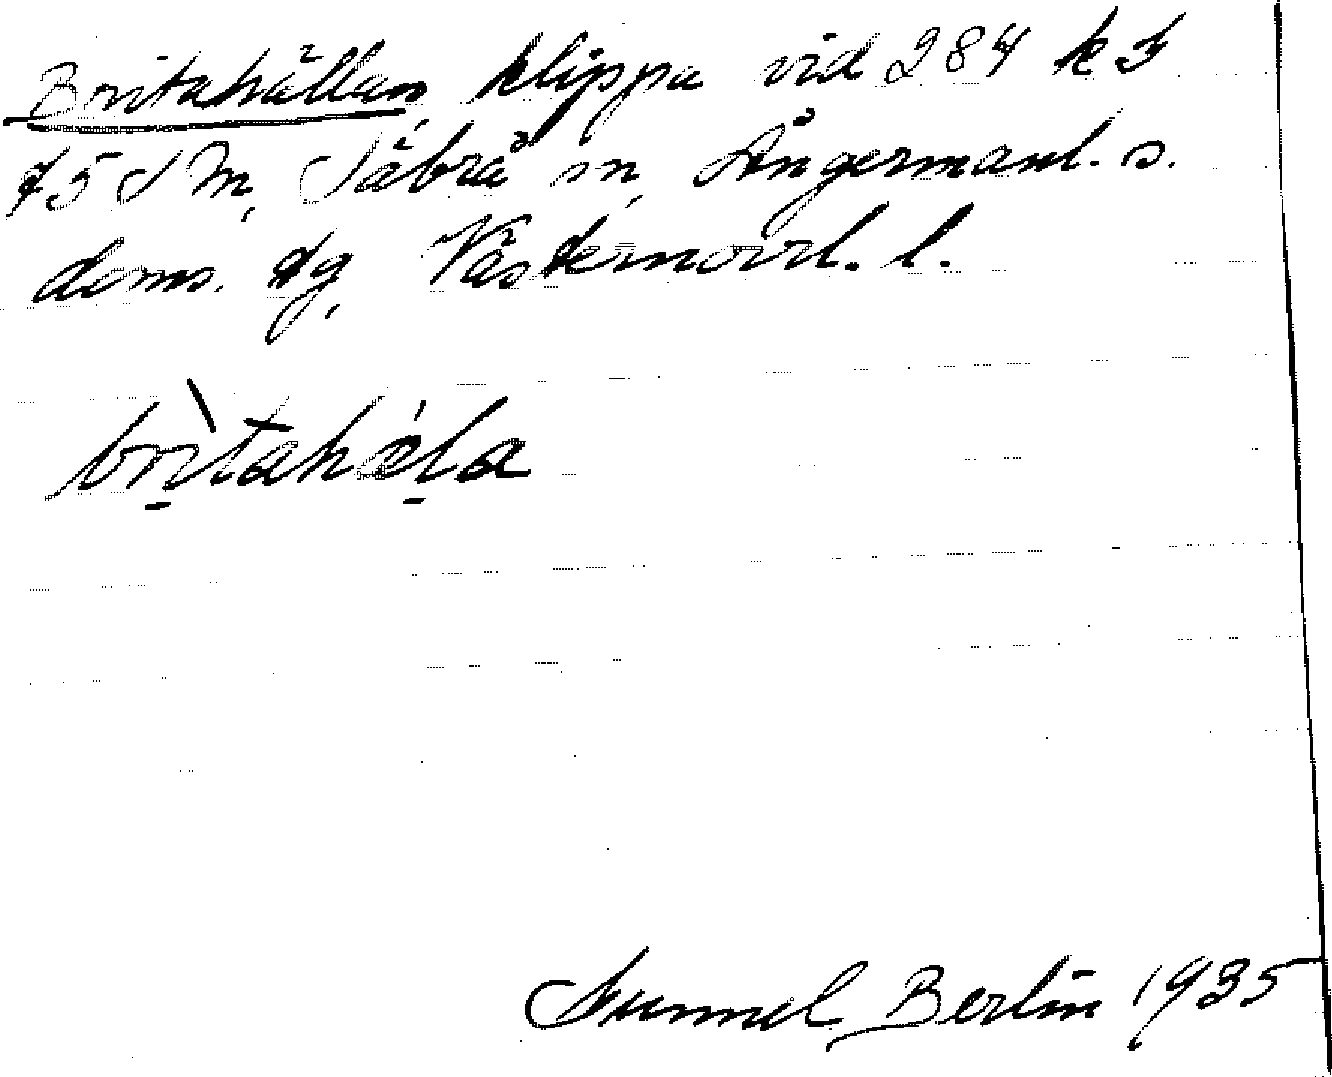 Britahällan, klippa vid 284 k f
f 5 d M, Säbrå sn, Ångermanl. s.
doms. dg, Västernorrl. l.
britahäla
Gunnel Berlin 1935